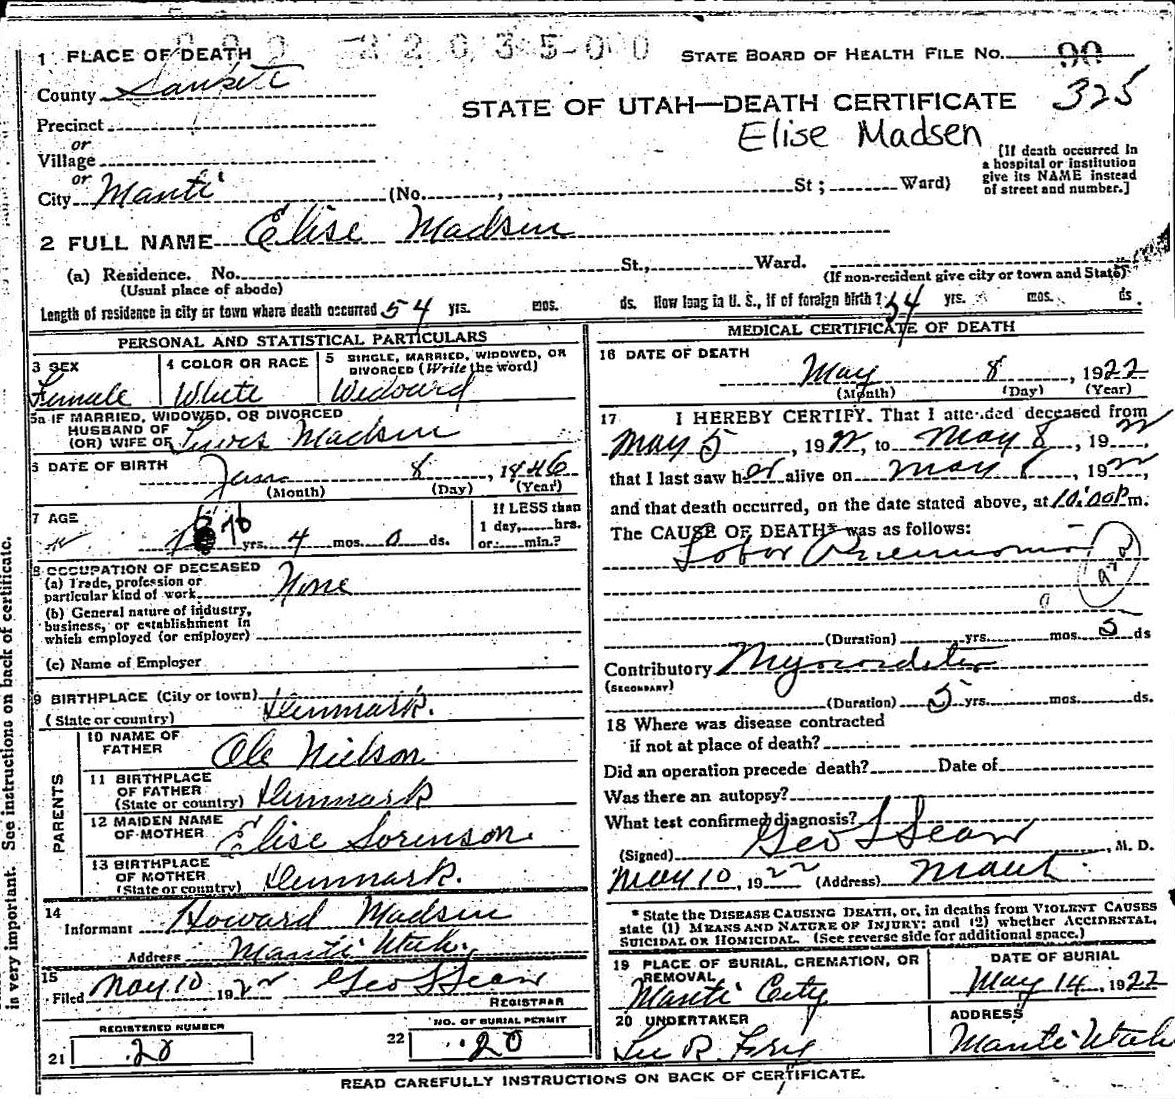 1 PLACE OF DEATH
STATE BOARD OF HEALTH FILE NO. 90
County Sanpete
325
STATE OF UTAH—DEATH CERTIFICATE
Elise Madsen
Precinct
or
Village
or
City Manti (No. , St ; Ward)
[If death occurred in
a hospital or institution
give its NAME instead
of street and number.]
2 FULL NAME Elise Madsen
(a) Residence. No. St., Ward.
(Usual place of abode)
(If non-resident give city or town and State)
Length of residence in city or town where death occurred 54 yrs. mos. ds. How long in U. S., if of foreign birth? 54 yrs. mos. ds.
PERSONAL AND STATISTICAL PARTICULARS
3 SEX
Female
4 COLOR OR RACE
White
5 SINGLE, MARRIED, WIDOWED, OR
DIVORCED (Write the word)
Widowed
5a IF MARRIED, WIDOWED, OR DIVORCED
HUSBAND OF
(OR) WIFE OF Lewis Madsen
6 DATE OF BIRTH
Jan 8, 1846
(Month) (Day) (Year)
7 AGE
76 yrs. 4 mos. 0 ds.
If LESS than
1 day, hrs.
or min.?
8 OCCUPATION OF DECEASED
(a) Trade, profession or
particular kind of work None
(b) General nature of industry,
business, or establishment in
which employed (or employer)
(c) Name of Employer
9 BIRTHPLACE (City or town)
(State or country) Denmark.
PARENTS
10 NAME OF
FATHER Ole Nielson
11 BIRTHPLACE
OF FATHER
(State or country) Denmark
12 MAIDEN NAME
OF MOTHER Elise Sorenson
13 BIRTHPLACE
OF MOTHER
(State or country) Denmark.
14
Informant Howard Madsen
Address Manti Utah.
15
Filed May 10 1922 Geo L Sears
REGISTRAR
REGISTERED NUMBER
21 20
NO. OF BURIAL PERMIT
22 20
MEDICAL CERTIFICATE OF DEATH
16 DATE OF DEATH
May 8, 1922
(Month) (Day) (Year)
17 I HEREBY CERTIFY. That I attended deceased from
May 5, 1922, to May 8, 1922
that I last saw her alive on May 8, 1922
and that death occurred, on the date stated above, at 10:00 P m.
The CAUSE OF DEATH* was as follows:
Lobar Pneumonia
(Duration) yrs. mos. 5 ds
Contributory Myocarditis
(SECONDARY)
(Duration) 5 yrs. mos. ds.
18 Where was disease contracted
if not at place of death?
Did an operation precede death? Date of
Was there an autopsy?
What test confirmed diagnosis?
(Signed) Geo L Sears, M. D.
May 10, 1922 (Address) Manti
* State the DISEASE CAUSING DEATH, or, in deaths from VIOLENT CAUSES
state (1) MEANS AND NATURE OF INJURY; and (2) whether ACCIDENTAL,
SUICIDAL OR HOMICIDAL. (See reverse side for additional space.)
19 PLACE OF BURIAL, CREMATION, OR
REMOVAL
Manti City
DATE OF BURIAL
May 14, 1922
20 UNDERTAKER
ADDRESS
Manti Utah
READ CAREFULLY INSTRUCTIONS ON BACK OF CERTIFICATE.
in very important. See instructions on back of certificate.